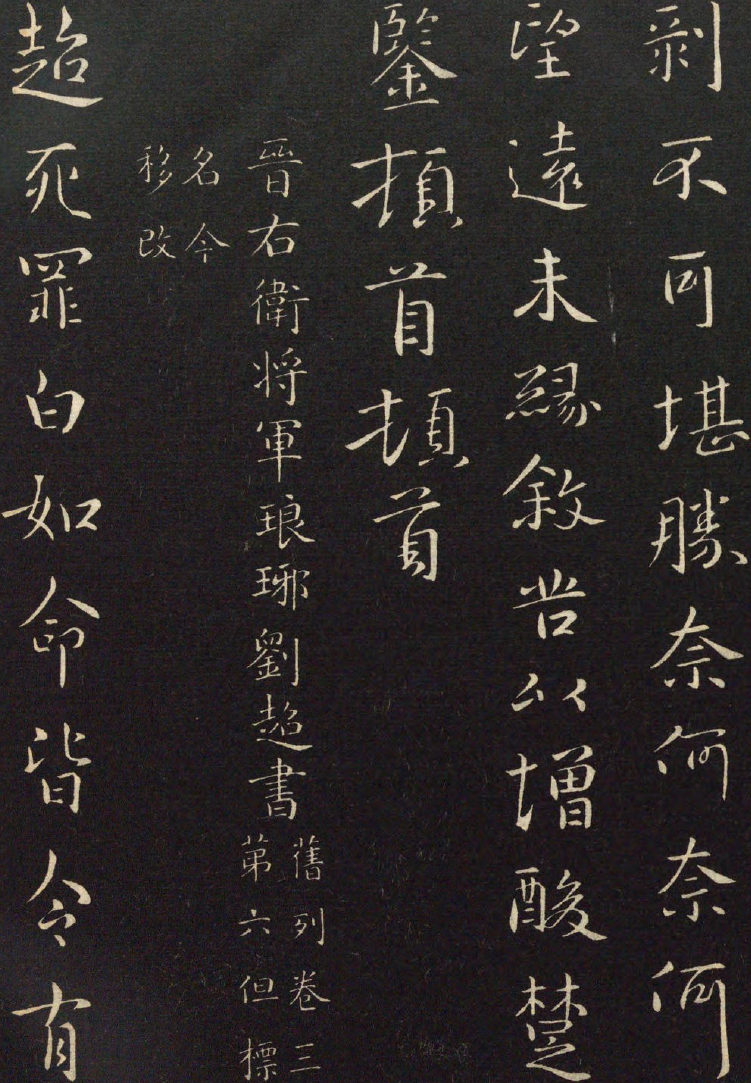 剥不可堪勝奈何奈何
望遠未緣敘苦以增酸楚
鑒頓首頓首
晉右衛将軍琅琊劉超書
舊列卷三
第六但標
名今
移改
超死罪白如命皆令有